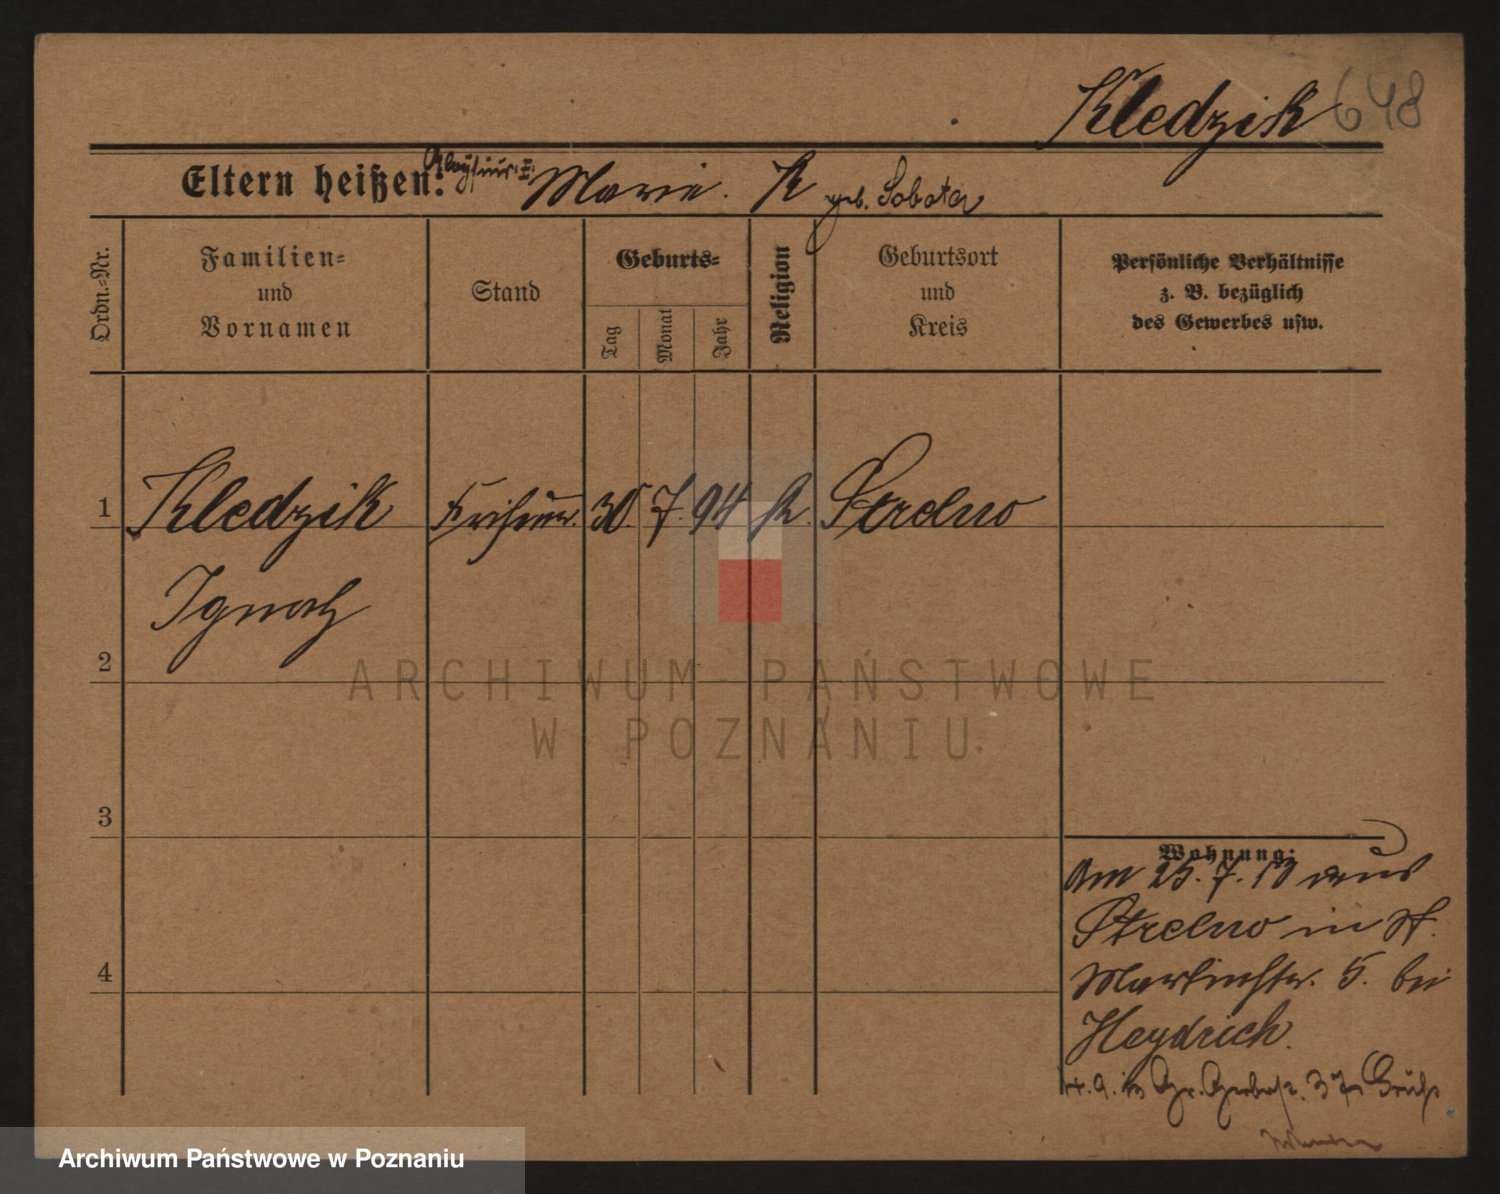 Kledzik 648
Eltern heißen: Marie. K geb. Sobota
Ordn.=Nr.
Familien=
und
Vornamen
Stand
Geburts=
Tag
Monat
Jahr
Religion
Geburtsort
und
Kreis
Persönliche Verhältnisse
z. B. bezüglich
des Gewerbes usw.
1 Kledzik Friseur. 30. 7. 94 K. Strelno
Ignatz
2
3
4
Wohnung:
Am 25. 7. 10 aus
Strelno in St.
Martinstr. 5. bei
Heydrich.
4. 9. in Gr. Gerberstr. 37
ARCHIWUM PAŃSTWOWE
W POZNANIU
Archiwum Państwowe w Poznaniu